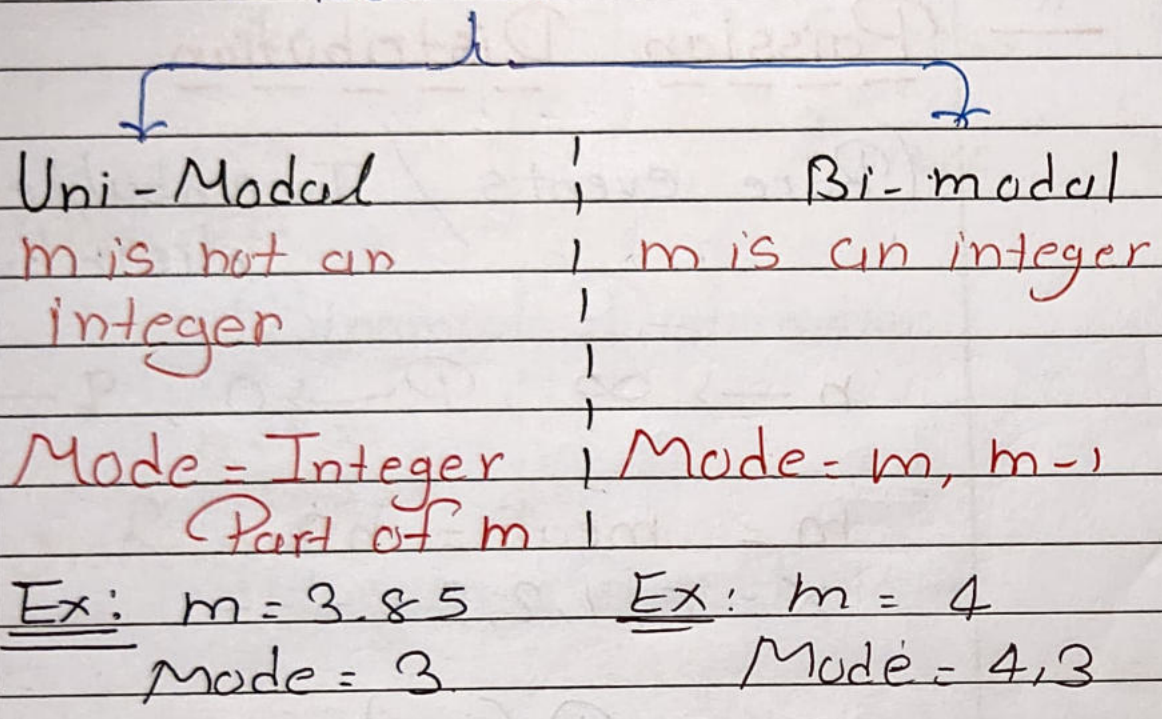 Uni-Modal
m is not an
integer
Mode = Integer
Part of m
Ex: m = 3.85
Mode = 3
Bi-modal
m is an integer
Mode = m, m-1
Ex: m = 4
Mode = 4,3